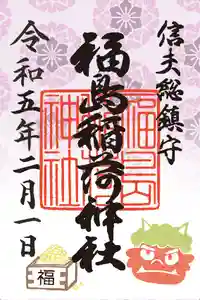 信夫総鎮守
福島稲荷神社
福島稲荷神社
令和五年二月一日
福